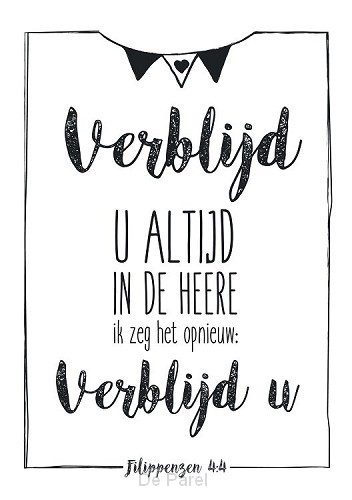 Verblijd
U ALTIJD
IN DE HEERE
ik zeg het opnieuw:
Verblijd u
Filippenzen 4:4
De Parel